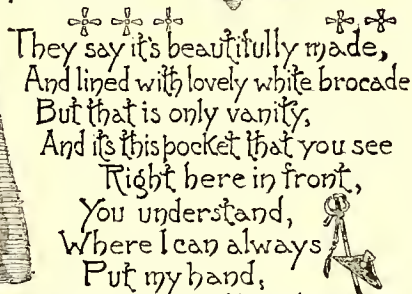 They say it's beautifully made,
And lined with lovely white brocade
But that is only vanity,
And it's this pocket that you see
Right here in front,
You understand,
Where I can always
Put my hand,